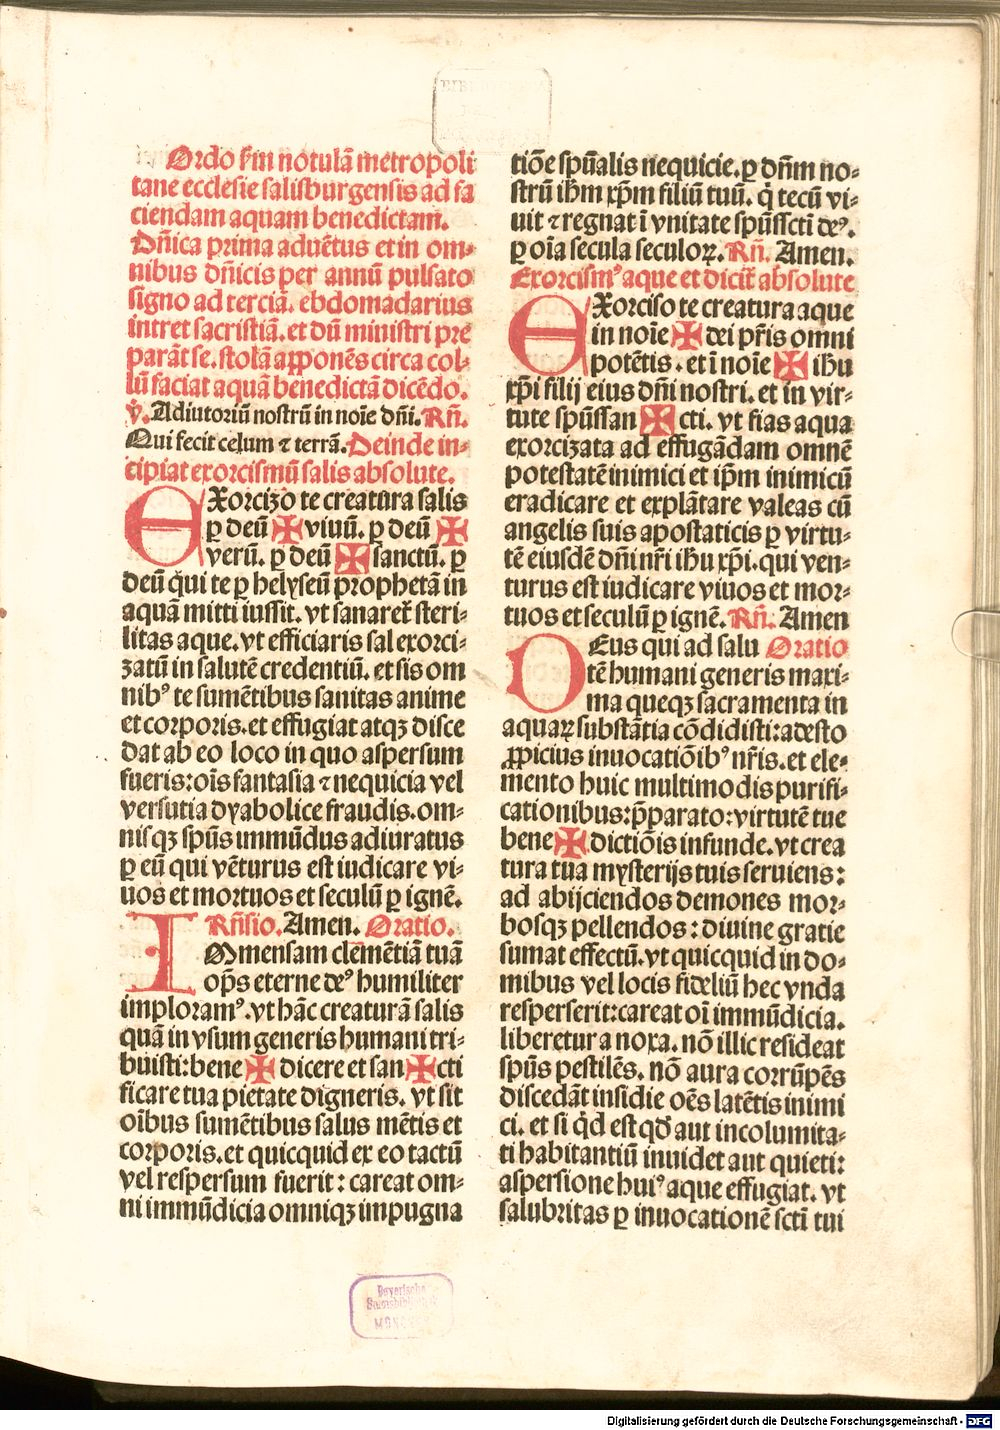 Ordo scḋm notulā metropoli
tane ecclesie salisburgensis ad fa
ciendam aquam benedictam.
Dn̄ica prima aduētus et in om-
nibus dn̄icis per annū pulsato
signo ad terciā. ebdomadarius
intret sacristiā. et dū ministri pre
parāt se. stolā apponēs circa col-
lū faciat aquā benedictā dicēdo.
V̓. Adiutoriū nostrū in noīe dn̄i. Rn̄.
Qui fecit celum ⁊ terrā. Deinde in-
cipiat exorcismū salis absolute.
Exorcizo te creatura salis
ꝑ deū ✠ viuū. ꝑ deū ✠
verū. ꝑ deū ✠ sanctū. ꝑ
deū q̇ui te ꝑ helyseū prophetā in
aquā mitti iussit. vt sanaret̉ steri-
litas aque. vt efficiaris sal exorci-
zatū in salutē credentiū. et sis om
nibꝰ te sumētibus sanitas anime
et corporis. et effugiat atqꝫ disce
dat ab eo loco in quo aspersum
fueris: oīs fantasia ⁊ nequicia vel
versutia dyabolice fraudis. om-
nisqꝫ spūs immūdus adiuratus
ꝑ eū qui vēturus est iudicare vi-
uos et mortuos et seculū ꝑ ignē.
Rn̄sio. Amen. Oratio.
IMmensam clemētiā tuā
op̄s eterne deꝰ humiliter
imploramꝰ. vt hāc creaturā salis
quā in vsum generis humani tri-
buisti: bene ✠ dicere et san ✠ cti
ficare tua pietate digneris. vt sit
oībus sumētibus salus mētis et
corporis. et quicquid ex eo tactū
vel respersum fuerit: careat om-
ni immūdicia omniqꝫ impugna
tiōe spūalis nequicie. ꝑ dn̄m no-
strū ih̄m xp̄m filiū tuū. q̇ tecū vi-
uit ⁊ regnat ī vnitate spūssctī deꝰ.
ꝑ oīa secula seculoꝝ. Rn̄. Amen.
Exorcismꝰ aque et dicit̉ absolute
EXorciso te creatura aque
in noīe ✠ dei pr̄is omni
potētis. et ī noīe ✠ ihu
xp̄i filij eius dn̄i nostri. et in vir-
tute spūssan ✠ cti. vt fias aqua
exorcizata ad effugādam omnē
potestatē inimici et ip̄m inimicū
eradicare et explātare valeas cū
angelis suis apostaticis ꝑ virtu-
tē eiusdē dn̄i nr̄i ihu xp̄i. qui ven-
turus est iudicare viuos et mor-
tuos et seculū ꝑ ignē. Rn̄. Amen
DEus qui ad salu Oratio
tē humani generis maxi-
ma queqꝫ sacramenta in
aquaꝝ substātia cōdidisti: adesto
ꝓpicius inuocatiōibꝰ nr̄is. et ele-
mento huic multimodis purifi-
cationibus: p̄parato: virtutē tue
bene ✠ dictiōis infunde. vt crea
tura tua mysterijs tuis seruiens:
ad abijciendos demones mor-
bosqꝫ pellendos: diuine gratie
sumat effectū. vt quicquid in do-
mibus vel locis fideliū hec vnda
resperserit: careat oī immūdicia.
liberetur a noxa. nō illic resideat
spūs pestilēs. nō aura corrūpēs
discedāt insidie oēs latētis inimi
ci. et si q̇d est qd̄ aut incolumita-
ti habitantiū inuidet aut quieti:
aspersione huiꝰ aque effugiat. vt
salubritas ꝑ inuocationē sctī tui
Bayerische
Staatsbibliothek
MÜNCHEN
Digitalisierung gefördert durch die Deutsche Forschungsgemeinschaft - DFG